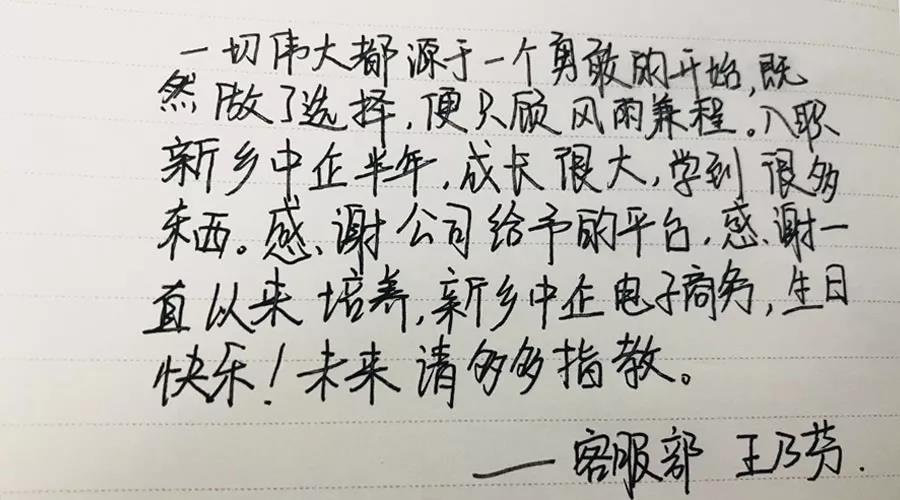 一切伟大都源于一个勇敢的开始,既
然做了选择,便只顾风雨兼程。入职
新乡中企半年,成长很大,学到很多
东西。感谢公司给予的平台,感谢一
直以来培养,新乡中企电子商务,生日
快乐!未来请多多指教。
——客服部 王乃芬.